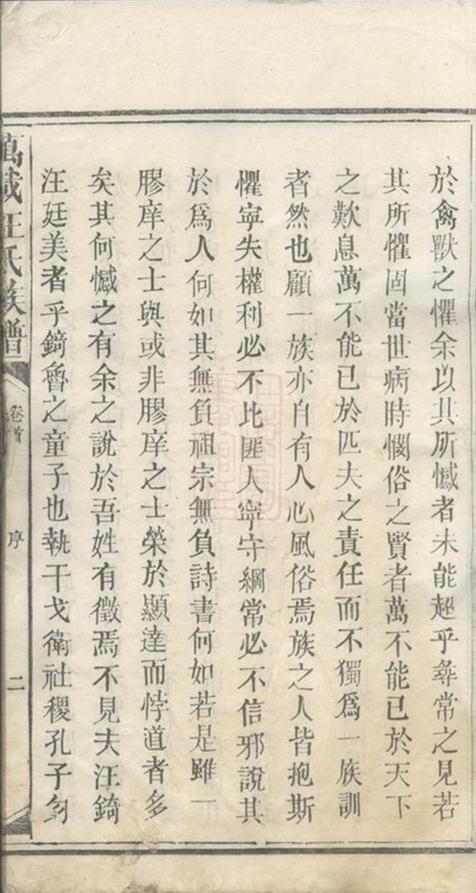 於禽獸之懼余以其所憾者未能超乎尋常之見若
其所懼固當世病時憫俗之賢者萬不能已於天下
之歎息萬不能已於匹夫之責任而不獨爲一族訓
者然也顧一族亦自有人心風俗焉族之人皆抱斯
懼寜失權利必不比匪人寜守綱常必不信邪說其
於爲人何如其無負祖宗無負詩書何如若是雖一
膠庠之士與或非膠庠之士榮於顯達而悖道者多
矣其何憾之有余之說於吾姓有徵焉不見夫汪錡
汪廷美者乎錡魯之童子也執干戈衛社稷孔子勿
萬載汪氏族譜
卷首
序
二